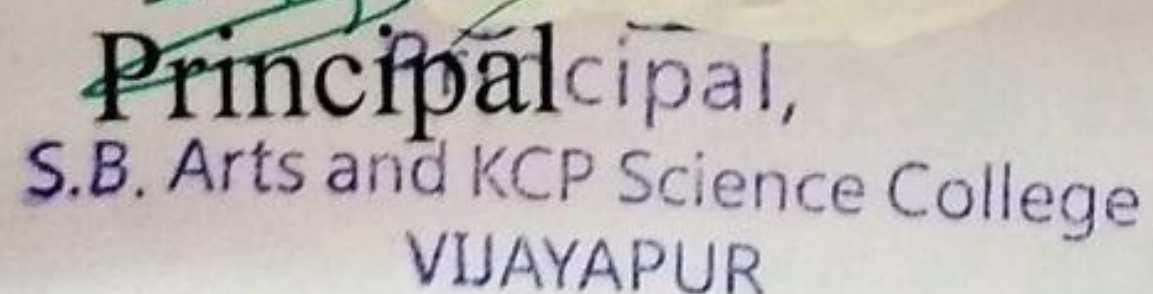 Principal
Principal,
S.B. Arts and KCP Science College
VIJAYAPUR